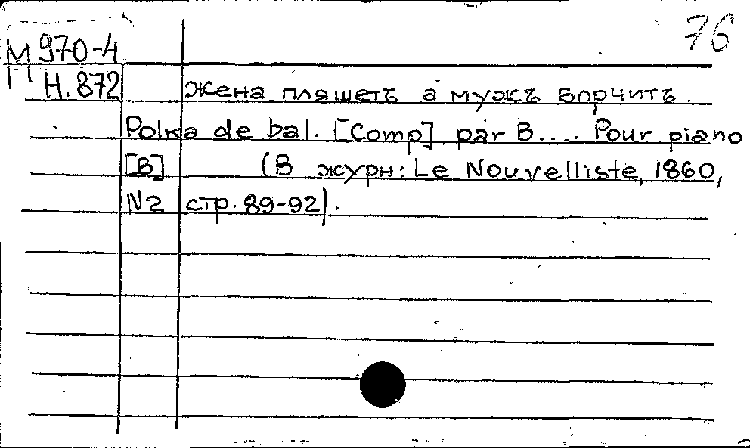 76
М 970-4
Н.872
Жена пляшетъ а мужъ ворчитъ
Polka de bal. [Comp] par B.... Pour piano
[B] (В журн: Le Nouvelliste, 1860,
N2 стр. 89-92).